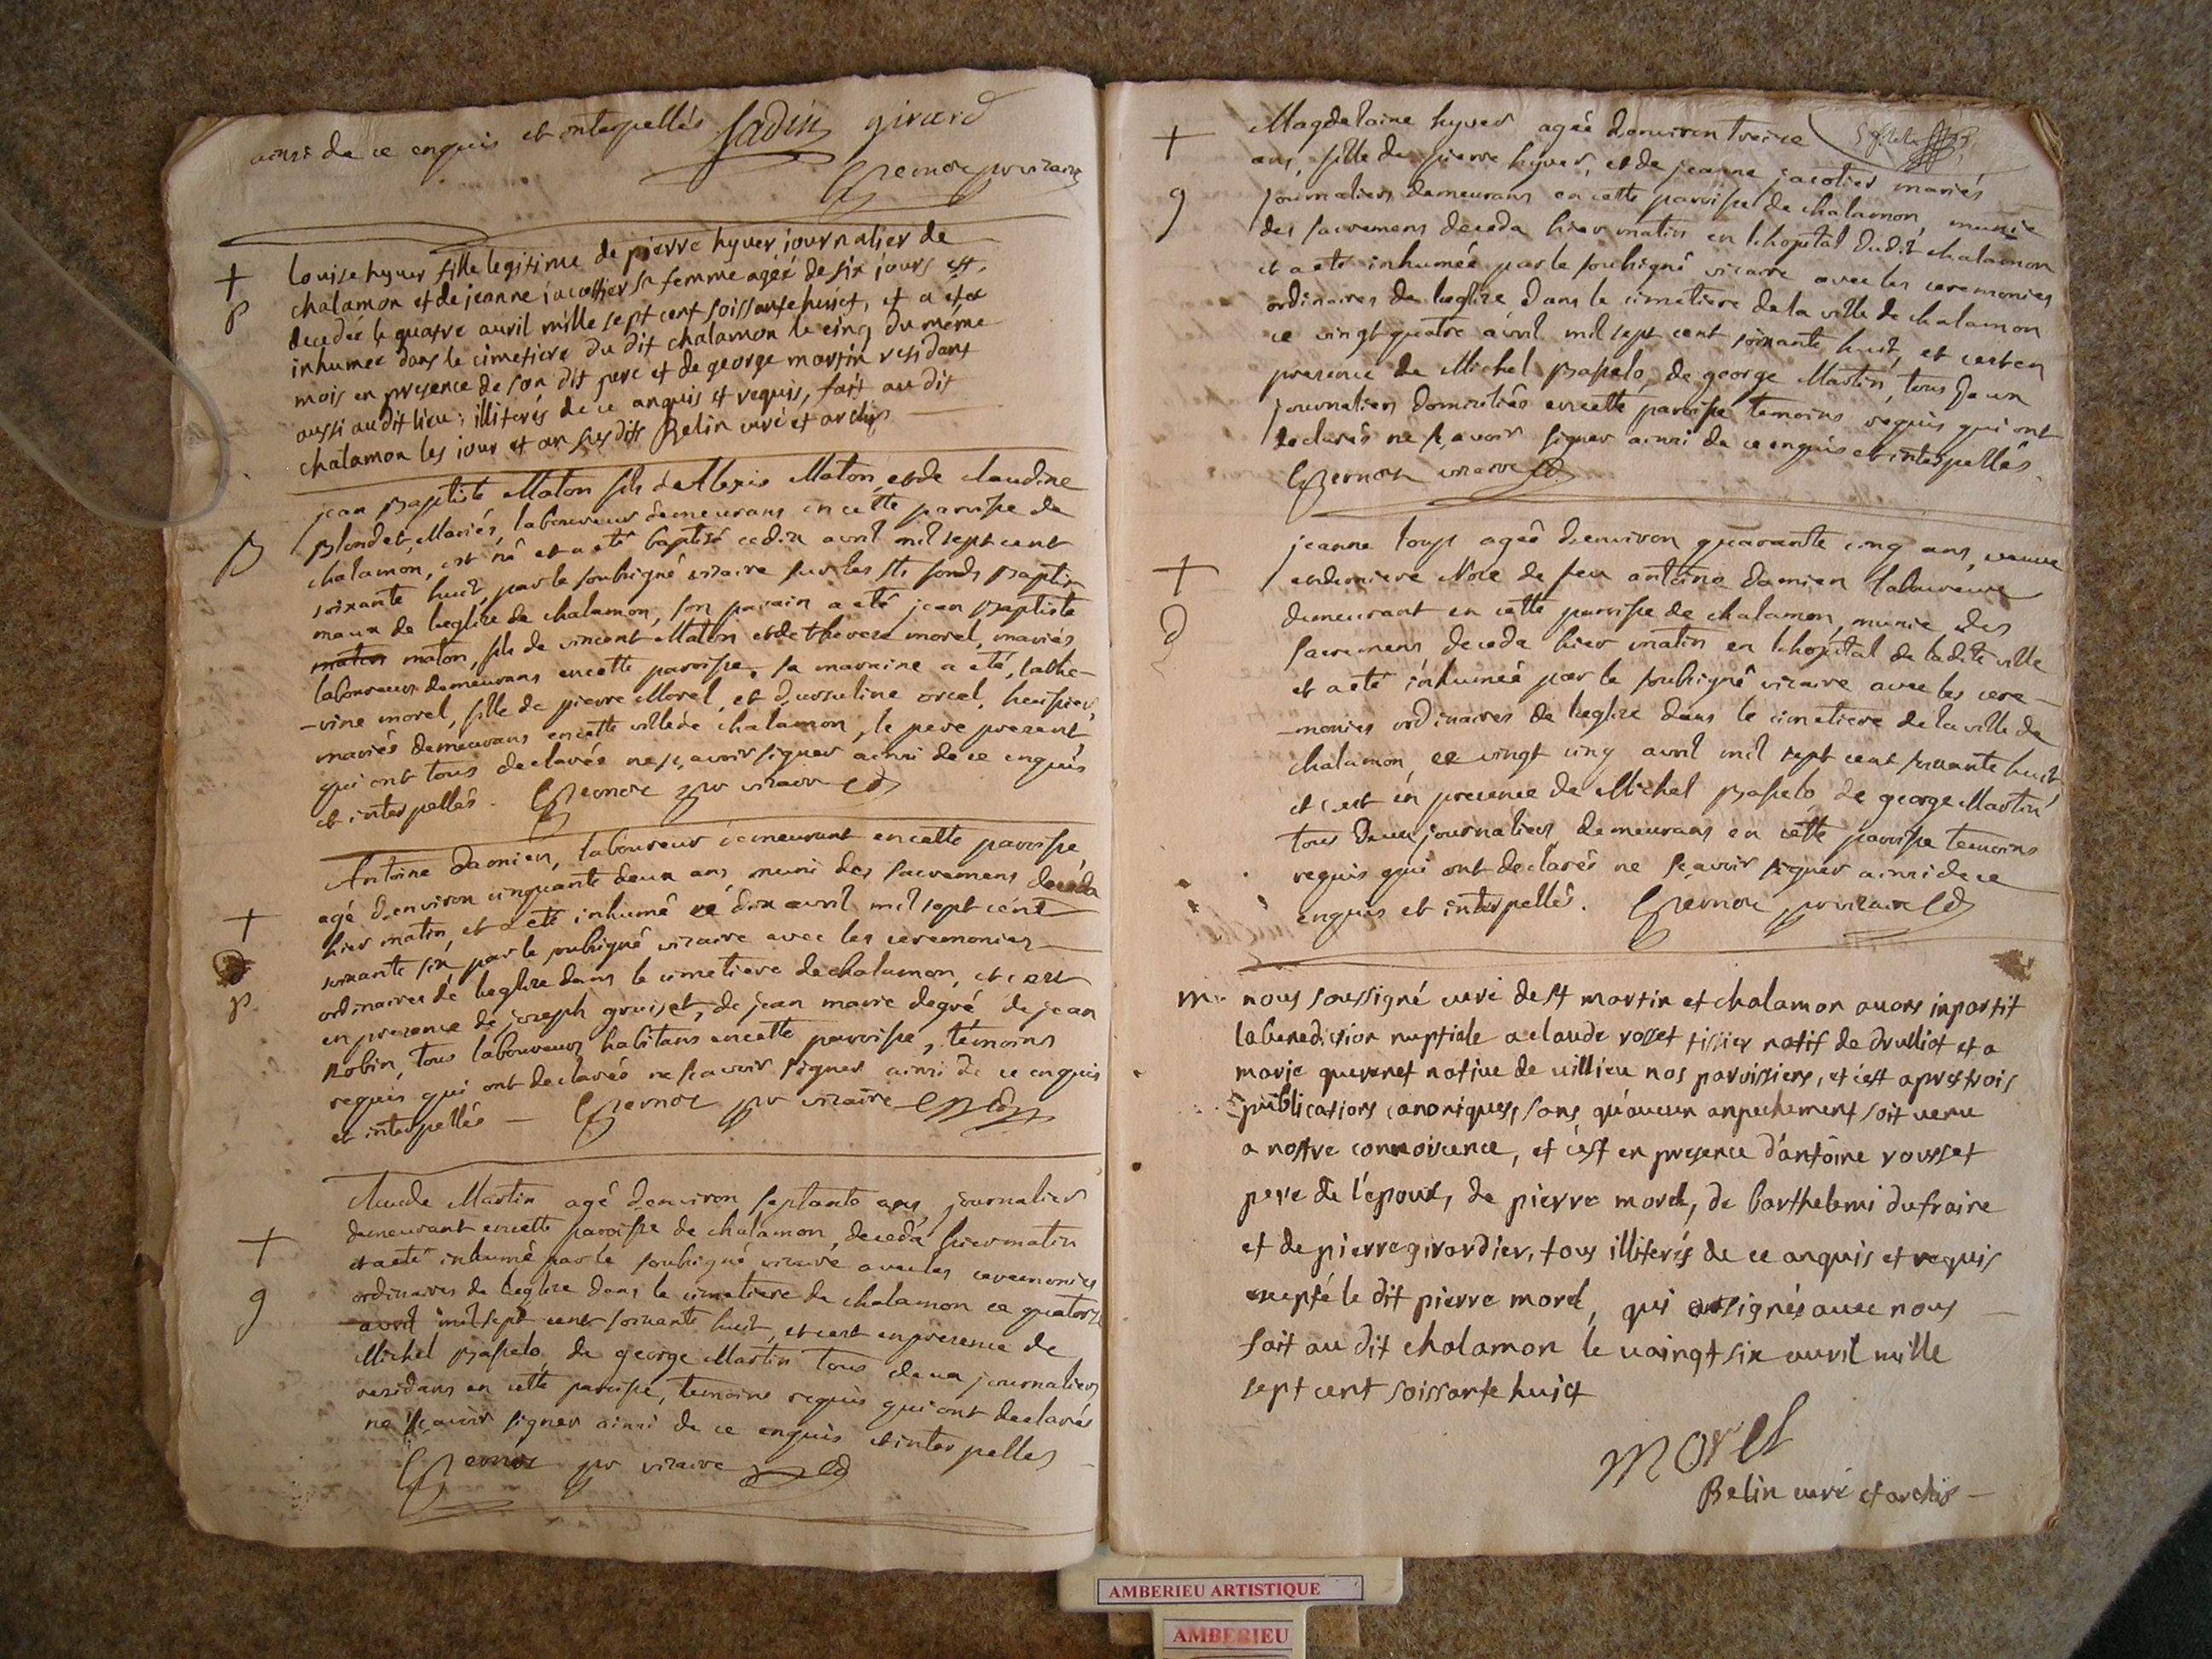 ainsi de ce enquis et interpellés girard
vicaire
+ Louise hyver fille legitime de pierre hyver journalier de
p chalamon et de jeanne jacottier sa femme agéé de six jours est
decedéé le quatre auril mille sept cent soissante huict, et a eté
inhumee dans le cimetiere du dit chalamon le cinq du méme
mois en presence de son dit pere et de george martin residant
aussi audit lieu; illiterés de ce anquis et requis, fait au dit
chalamon les jour et an susdits Belin curé et archip
jean Baptiste Maton fils de Alexis Maton, et de claudine
B Blondet, Mariés, laboureurs demeurans en cette paroisse de
chalamon, est né et a eté baptisé ce dix avril mil sept cent
soixante huit, par le soubsigné vicaire sur les Sts fonds Baptis
maux de leglise de chalamon, son parain a eté jean Baptiste
maton maton, fils de vincent Maton et de therese morel, mariés
laboureurs demeurans en cette paroisse, sa maraine a eté, cathe-
-rine morel, fille de pierre Morel, et dursuline orcel, huissier,
mariés demeurans en cette ville de chalamon, le pere present,
qui ont tous declarés ne sçavoir signer ainsi de ce enquis
et interpellés. vicaire
Antoine damien, laboureur demeurant en cette paroisse
agé denviron cinquante deux ans muni des sacremens deceda
+ hier matin, et a eté inhumé ce dix avril mil sept cent
soixante six par le soubsigné vicaire avec les ceremonies
ordinaires de leglise dans le cimetiere de chalamon, et c est
p en presence de joseph gruiset, de jean marie degré, de jean
Robin, tous laboureurs habitans en cette paroisse, témoins
requis qui ont declarés ne scavoir signer ainsi de ce enquis
et interpellés vicaire
Claude Martin agé denviron septante ans, journalier
+ demeurant en cette paroisse de chalamon, deceda hier matin
et a eté inhumé par le soubsigné vicaire avec les ceremonies
g ordinaires de leglise dans le cimetiere de chalamon ce quatorze
avril mil sept cent soixante huit, et c est en presence de
Michel de george Martin tous deux journaliers
residans en cette paroisse, temoins requis qui ont declarés
ne sçavoir signer ainsi de ce enquis et interpellés
vicaire
+ Magdelaine hyver agéé denviron treize
ans, fille de pierre hyver, et de jeanne jacotier mariés
g journaliers demeurans en cette paroisse de chalamon, munie
des sacremens deceda hier matin en lhopital dudit chalamon
et a eté inhumée par le soubsigné vicaire avec les ceremonies
ordinaires de leglise dans le cimetiere de la ville de chalamon
ce vingt quatre avril mil sept cent soixante huit, et cest en
presence de Michel de george Martin, tous deux
journaliers domiciliés en cette paroisse temoins requis qui ont
declarés ne sçavoir signer ainsi de ce enquis et interpellés.
vicaire
jeanne loup agéé denviron quarante cinq ans, veuve
+ et derniere de feu antoine damien laboureur
d demeurant en cette paroisse de chalamon, munie des
sacremens deceda hier matin en lhopital de ladite ville
et a eté inhumée par le soubsigné vicaire avec les cere-
-monies ordinaires de leglise dans le cimetiere de la ville de
chalamon, ce vingt cinq avril mil sept cent soixante huit
et c est en presence de Michel de george Martin
tous deux journaliers demeurans en cette paroisse temoins
requis qui ont declarés ne sçavoir signer ainsi de ce
enquis et interpellés. vicaire
m. nous soussigné curé de st martin et chalamon avons inpartit
la benediction nuptiale a claude rosset tissier natif de drulliat et a
marie quernet native de uillieu nos paroissiens, et c'est apres trois
publications canoniques, sans qu'aucun anpechement soit uenu
a nostre connoisence, et c'est en presence d'antoine rousset
pere de l'epoux, de pierre morel, de barthelemi dufraire
et de pierre girardier, tous illiterés de ce anquis et requis
exepté le dit pierre morel, qui ont signés auec nous
fait au dit chalamon le uaingt six auril mille
sept cent soissante huict
morel
Belin curé et archip
AMBERIEU ARTISTIQUE
AMBERIEU